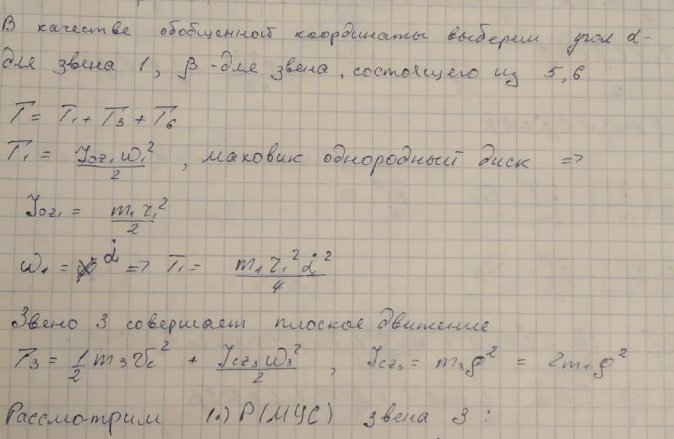 В качестве обобщенной координаты выберем угол α-
для звена 1, β-для звена, состоящего из 5,6
T = T₁ + T₃ + T₆
T₁ = Joz₁ω₁²/2, маховик однородный диск =>
Joz₁ = m₁r₁²/2
ω₁ = α̇ => T₁ = m₁r₁²α̇²/4
Звено 3 совершает плоское движение
T₃ = 1/2 m₃v_c² + Jcz₃ω₃²/2, Jcz₃ = m₃ρ² = 2m₁ρ²
Рассмотрим (·) P(МЦС) звена 3: